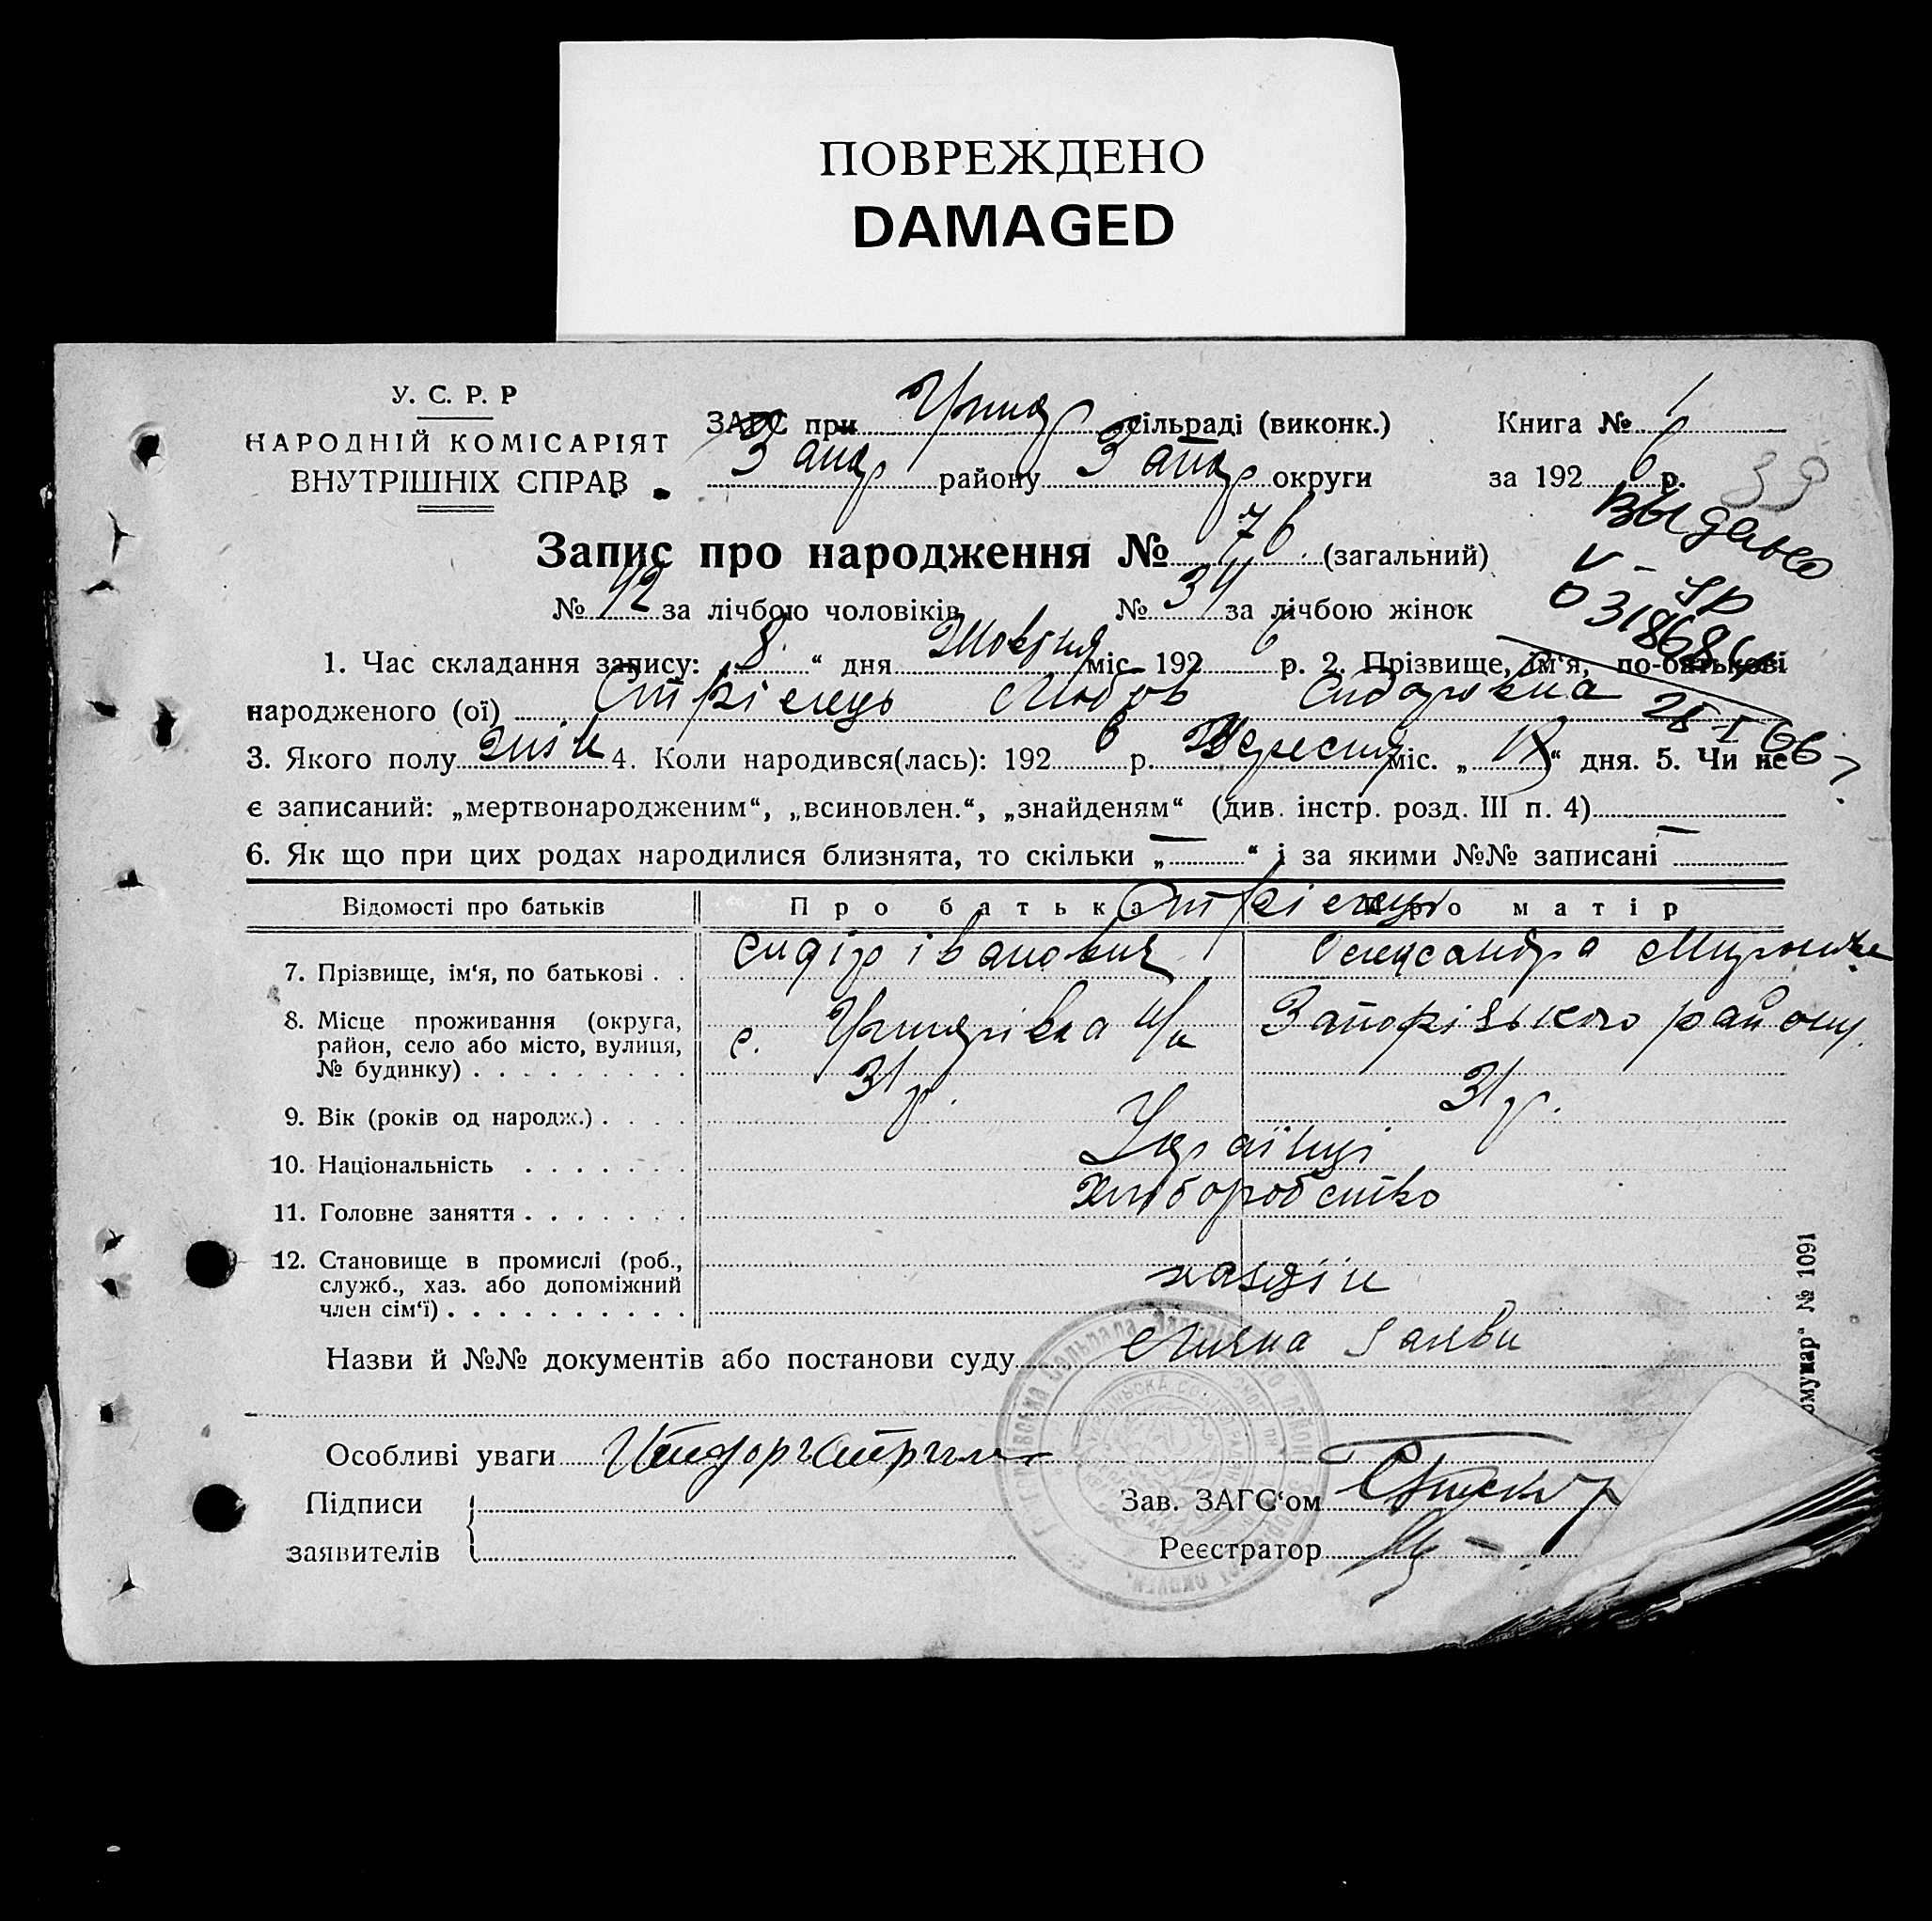 ПОВРЕЖДЕНО
DAMAGED
У. С. Р. Р
НАРОДНІЙ КОМІСАРІЯТ
ВНУТРІШНІХ СПРАВ
ЗАГС при сільраді (виконк.)
Запор району Запор округи
Книга № 1
за 1926 р.
39
Запис про народження № 76 (загальний)
№ 42 за лічбою чоловіків № 34 за лічбою жінок
Выдано
V-
0318684
1. Час складання запису: „8“ дня Жовтня міс. 1926 р. 2. Прізвище, ім‘я, по-батькові
народженого (ої) Стрілець Любов Сидоровна
3. Якого полу жін 4. Коли народився(лась): 1926 р. Вересня міс. „ “ дня. 5. Чи не
є записаний: „мертвонародженим“, „всиновлен.“, „знайденям“ (див. інстр. розд. III п. 4) —
6. Як що при цих родах народилися близнята, то скільки „—“ і за якими №№ записані —
Відомості про батьків Про батька Про матір
Стрілець
7. Прізвище, ім‘я, по батькові . . Сидір Іванович Олександра
8. Місце проживання (округа,
район, село або місто, вулиця,
№ будинку) . . . . . . . . .
с. Запорізького району
9. Вік (років од народж.) . . . . 31 р. 31 р.
10. Національність . . . . . . . Українці
11. Головне заняття . . . . . . . хліборобство
12. Становище в промислі (роб.,
служб., хаз. або допоміжний
член сім‘ї) . . . . . . . . . .
хазяїн
Назви й №№ документів або постанови суду
Особливі уваги
Підписи
заявителів
Зав. ЗАГС‘ом
Реєстратор
№ 1091